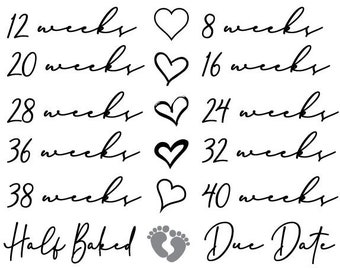 12 weeks 8 weeks
20 weeks 16 weeks
28 weeks 24 weeks
36 weeks 32 weeks
38 weeks 40 weeks
Half Baked Due Date